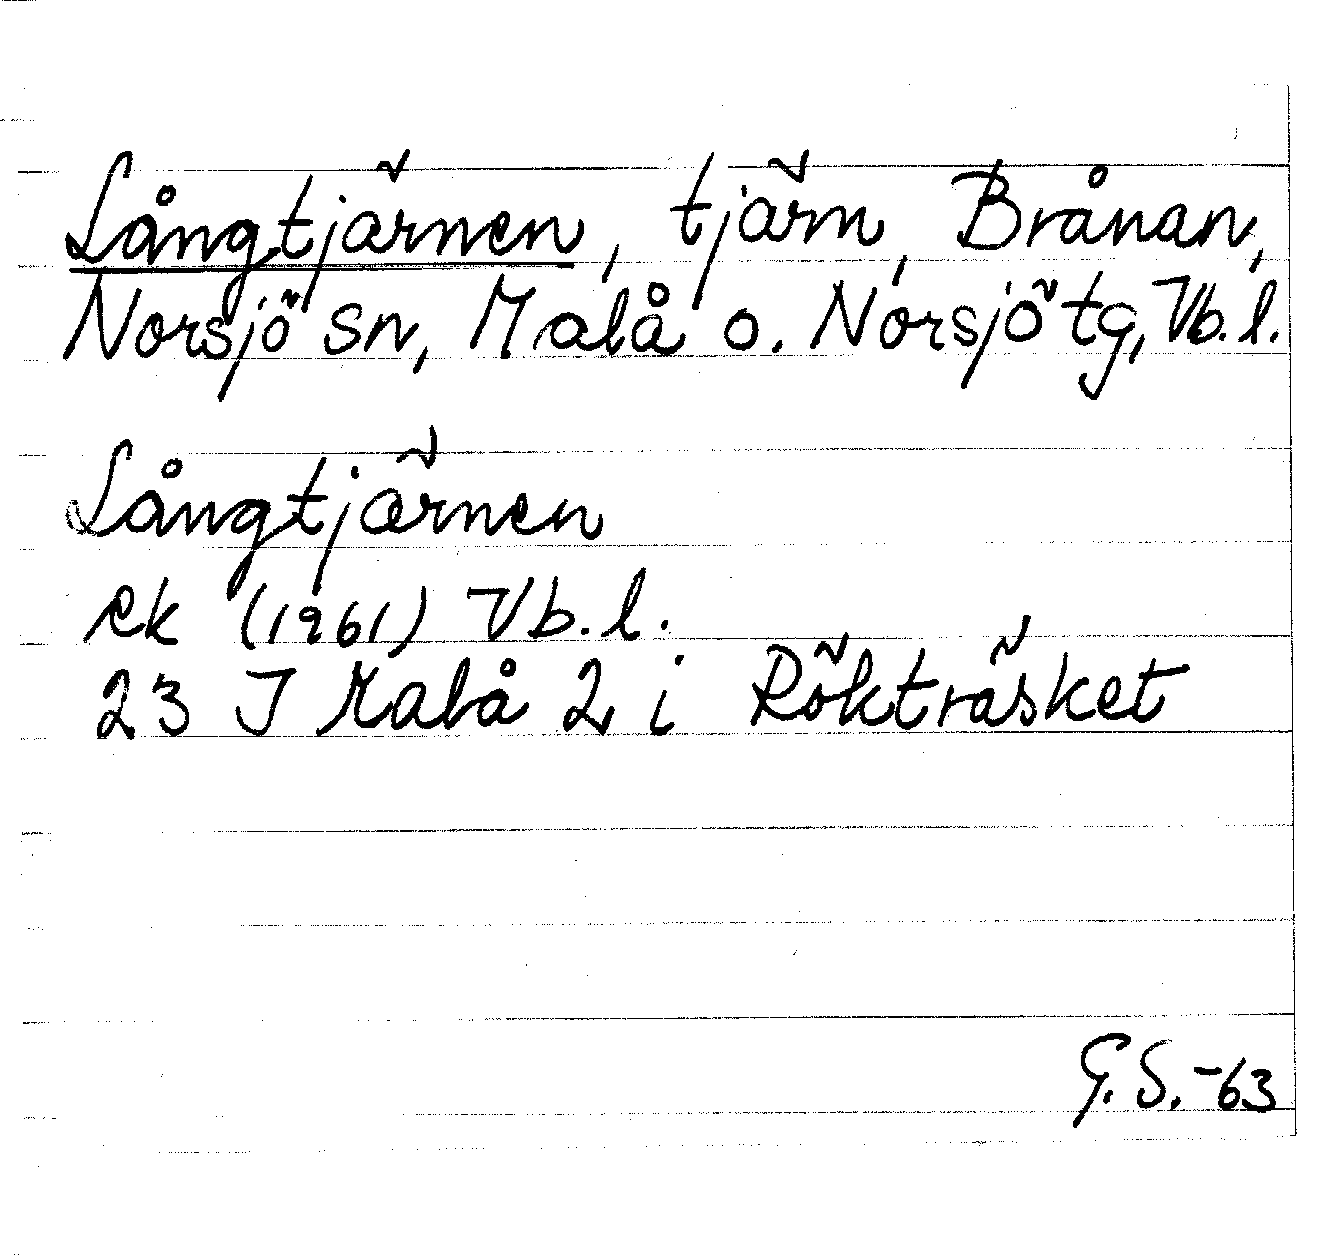 Långtjärnen, tjärn, Brånan,
Norsjö sn, Malå o. Norsjö tg, Vb. l.
Långtjärnen
ek (1961) Vb. l.
23 J Malå 2 i Rökträsket
G. S. -63